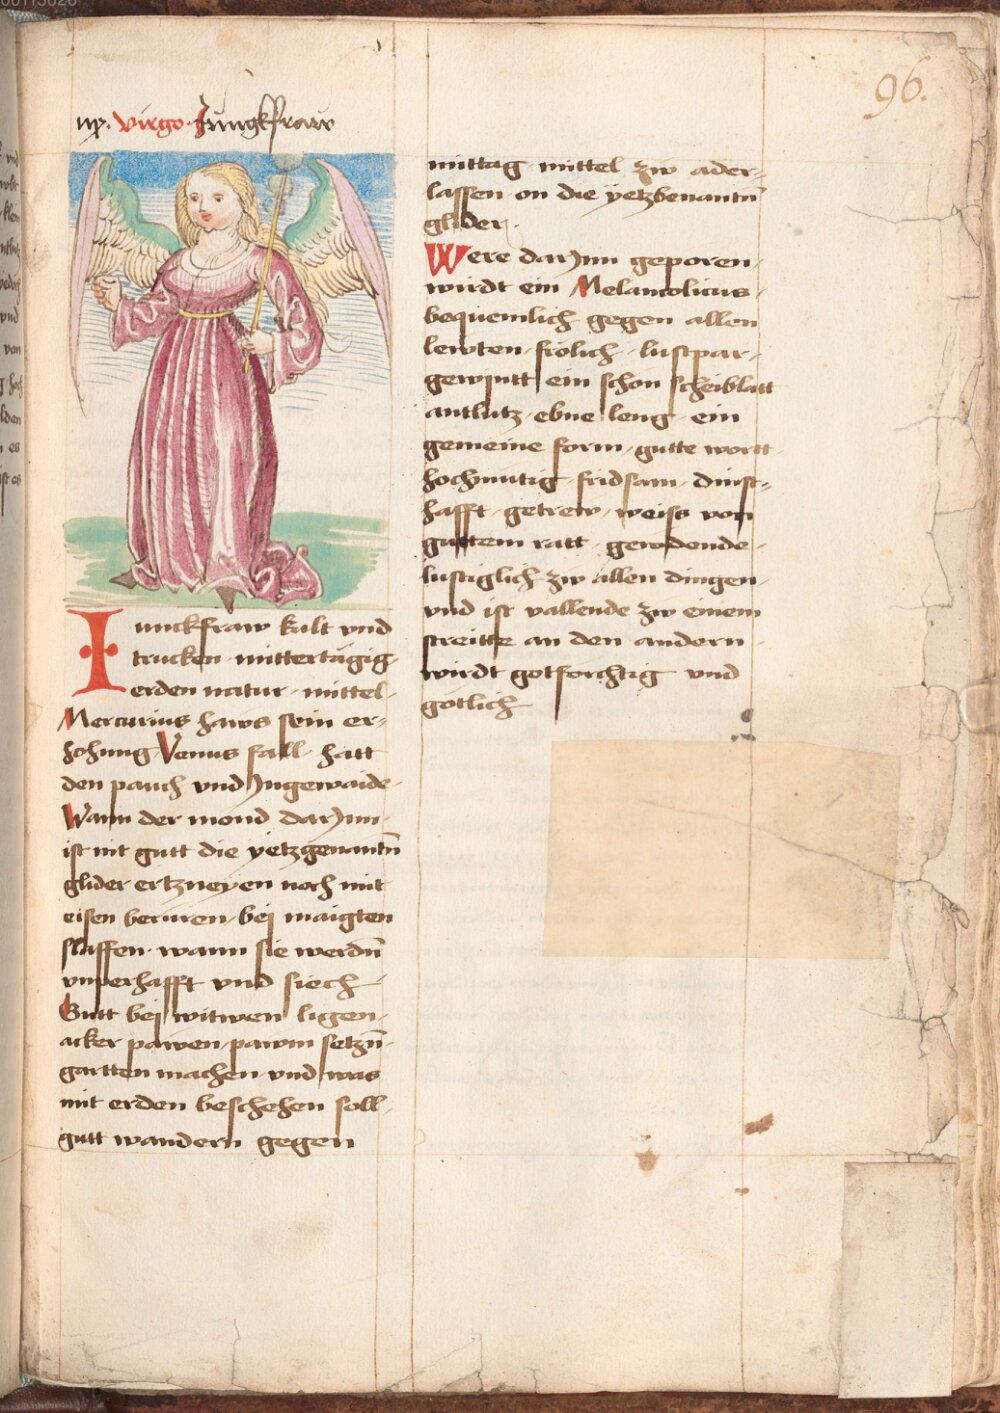 96.
mp. virgo. Jungkfraw
Iunckfraw kalt vnd
trucken mittertägig
erden natur mittel
Mercurius haws sein er-
hohung Venus fall hatt
den pauch vnd Jngewaide
Wann der mond darJnn
ist nit gutt die yetzgenantn̄
glider ertzneyen noch mit
eisen beruren bej maigten
slaffen wann sie werdn̄
vnperhafft vnd siech
Gutt bej witwen ligen
acker pawen pawm setzn̄
gartten machen vnd was
mit erden beschehen soll
gutt wandern gegen
mittag mittel zw ader-
lassen on die yetzbenantn̄
glider
Were darJnn geporen
wirdt ein Melancolicus
bequemlich gegen allen
lewten frölich lustpar
gewjntt ein schön scheiblatt
antlutz ebne leng ein
gemeine form gutte wortt
hochmutig fridsam dinst-
hafft getrew weiss von
guttem ratt gewdende
lustiglich zw allen dingen
vnd ist vallende zw einem
streitte an den andern
wirdt gotforchtig vnd
götlich